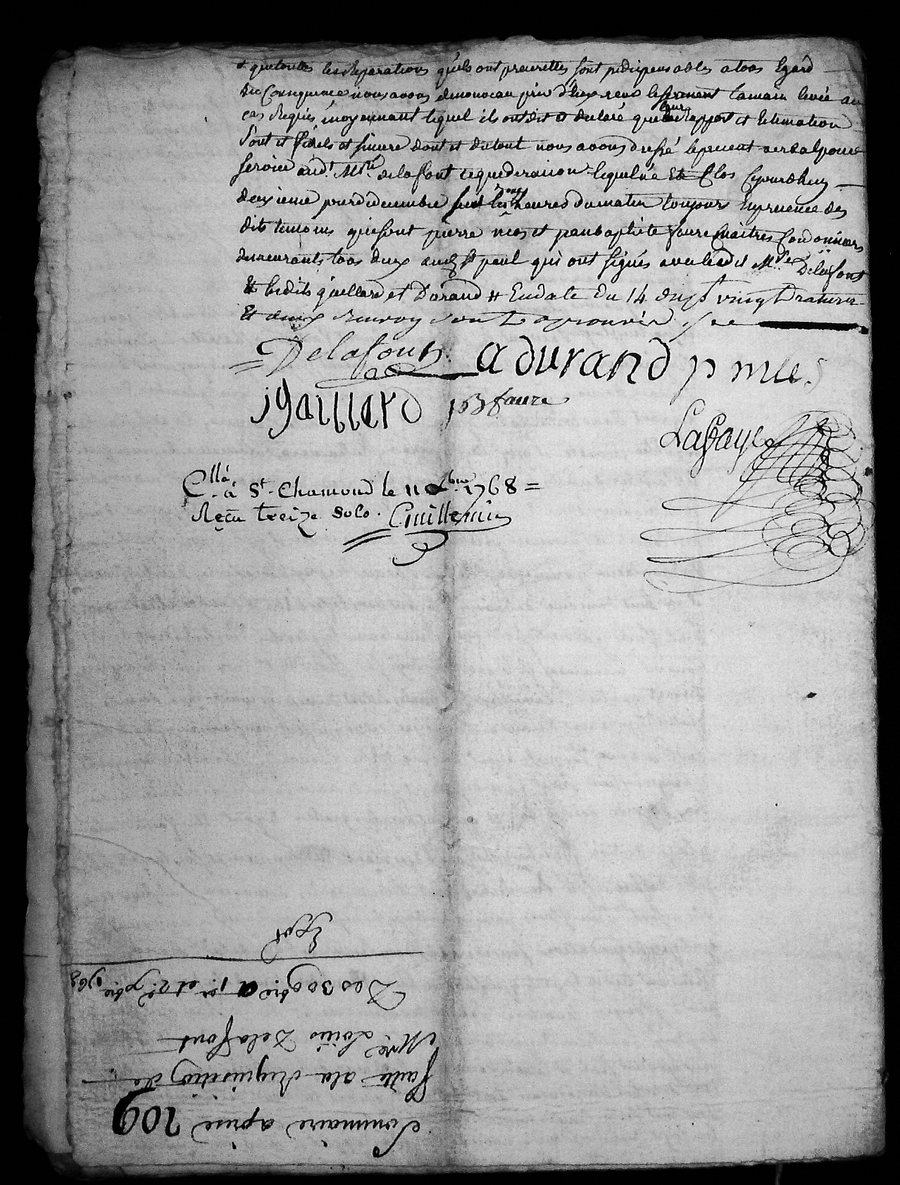 et que toutes les Reparations quils ont preuettes sont indispensables a tous Egard
En Consequence nous avons denouveau pris d'Eux serment la main levée au
cas Requis moyennant lequel ils ont dit et declaré que leur rapport et Estimation
sont et fidels et sincere dont et dutout nous avons dressé le present verbal pour
servir aud.t M.re delafont ce que de raison lequel a Eté Clos Cejourdhuy
deuxieme jour decembre sur les heures du matin toujours En presence des
dits temoins qui sont pierre et jean baptiste faure maitres Cordonniers
demeurants tous deux aud. St paul qui ont signés avec led. M.re Delafont
& lesdits gaillard et Durand # En date du 14 sept vingt
Et deux Renvoy sont approuvés
Delafont a durand p
j gaillard j b faure
Lafaye
C.llé a St. Chamond le 11 Xbre 1768 =
Reçu treize sols. Guillemin
Sommaire aprise 209
faite ala Requisition de
M.re Loüis Delafont
Des 30 9bre a 1.er et 2.e Xbre 1768
Expt